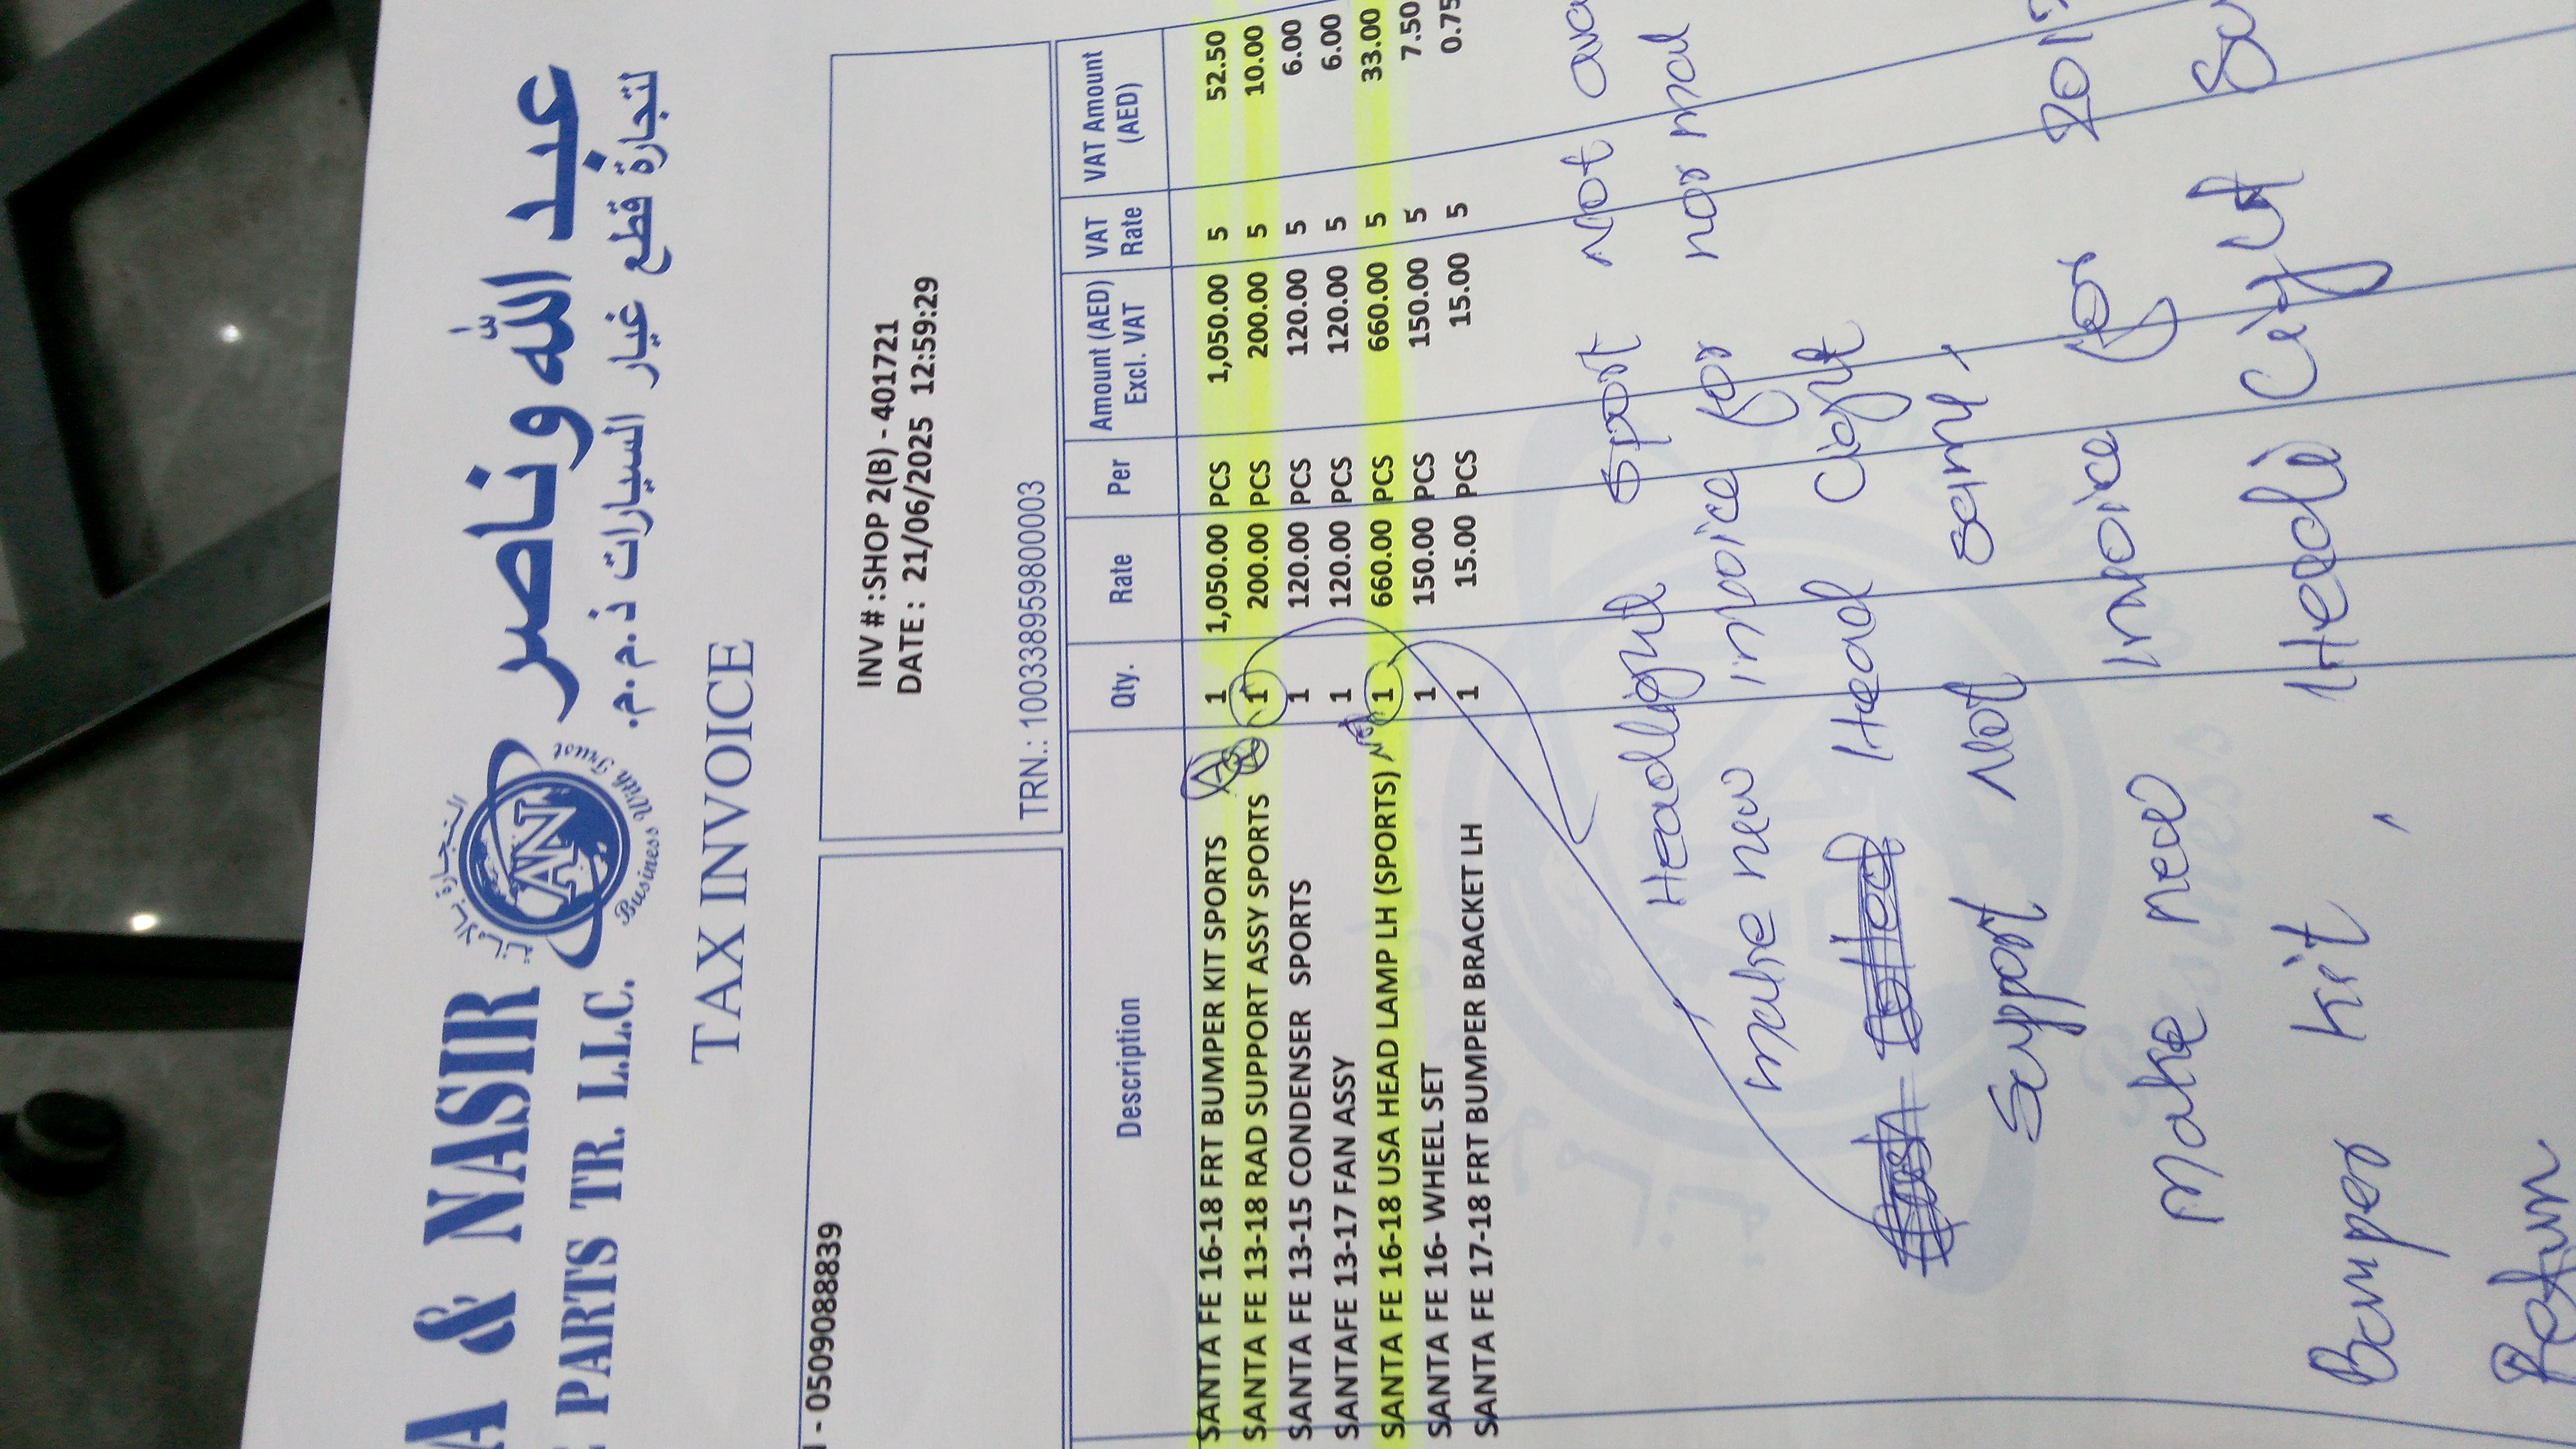 A & NASIR عبد الله وناصر
PARTS TR. L.L.C. لتجارة قطع غيار السيارات ذ.م.م.
AN
Business With Trust
TAX INVOICE
- 0509088839
INV # :SHOP 2(B) - 401721
DATE : 21/06/2025 12:59:29
TRN.: 100338959800003
Description Qty. Rate Per Amount (AED) Excl. VAT VAT Rate VAT Amount (AED)
SANTA FE 16-18 FRT BUMPER KIT SPORTS 1 1,050.00 PCS 1,050.00 5 52.50
SANTA FE 13-18 RAD SUPPORT ASSY SPORTS 1 200.00 PCS 200.00 5 10.00
SANTA FE 13-15 CONDENSER SPORTS 1 120.00 PCS 120.00 5 6.00
SANTAFE 13-17 FAN ASSY 1 120.00 PCS 120.00 5 6.00
SANTA FE 16-18 USA HEAD LAMP LH (SPORTS) 1 660.00 PCS 660.00 5 33.00
SANTA FE 16- WHEEL SET 1 150.00 PCS 150.00 5 7.50
SANTA FE 17-18 FRT BUMPER BRACKET LH 1 15.00 PCS 15.00 5 0.75
Headlight sport not
make new invoice for normal
Head Light
Support Not Same,
Make new Invoice for
Bumper Kit, Head Light
Return